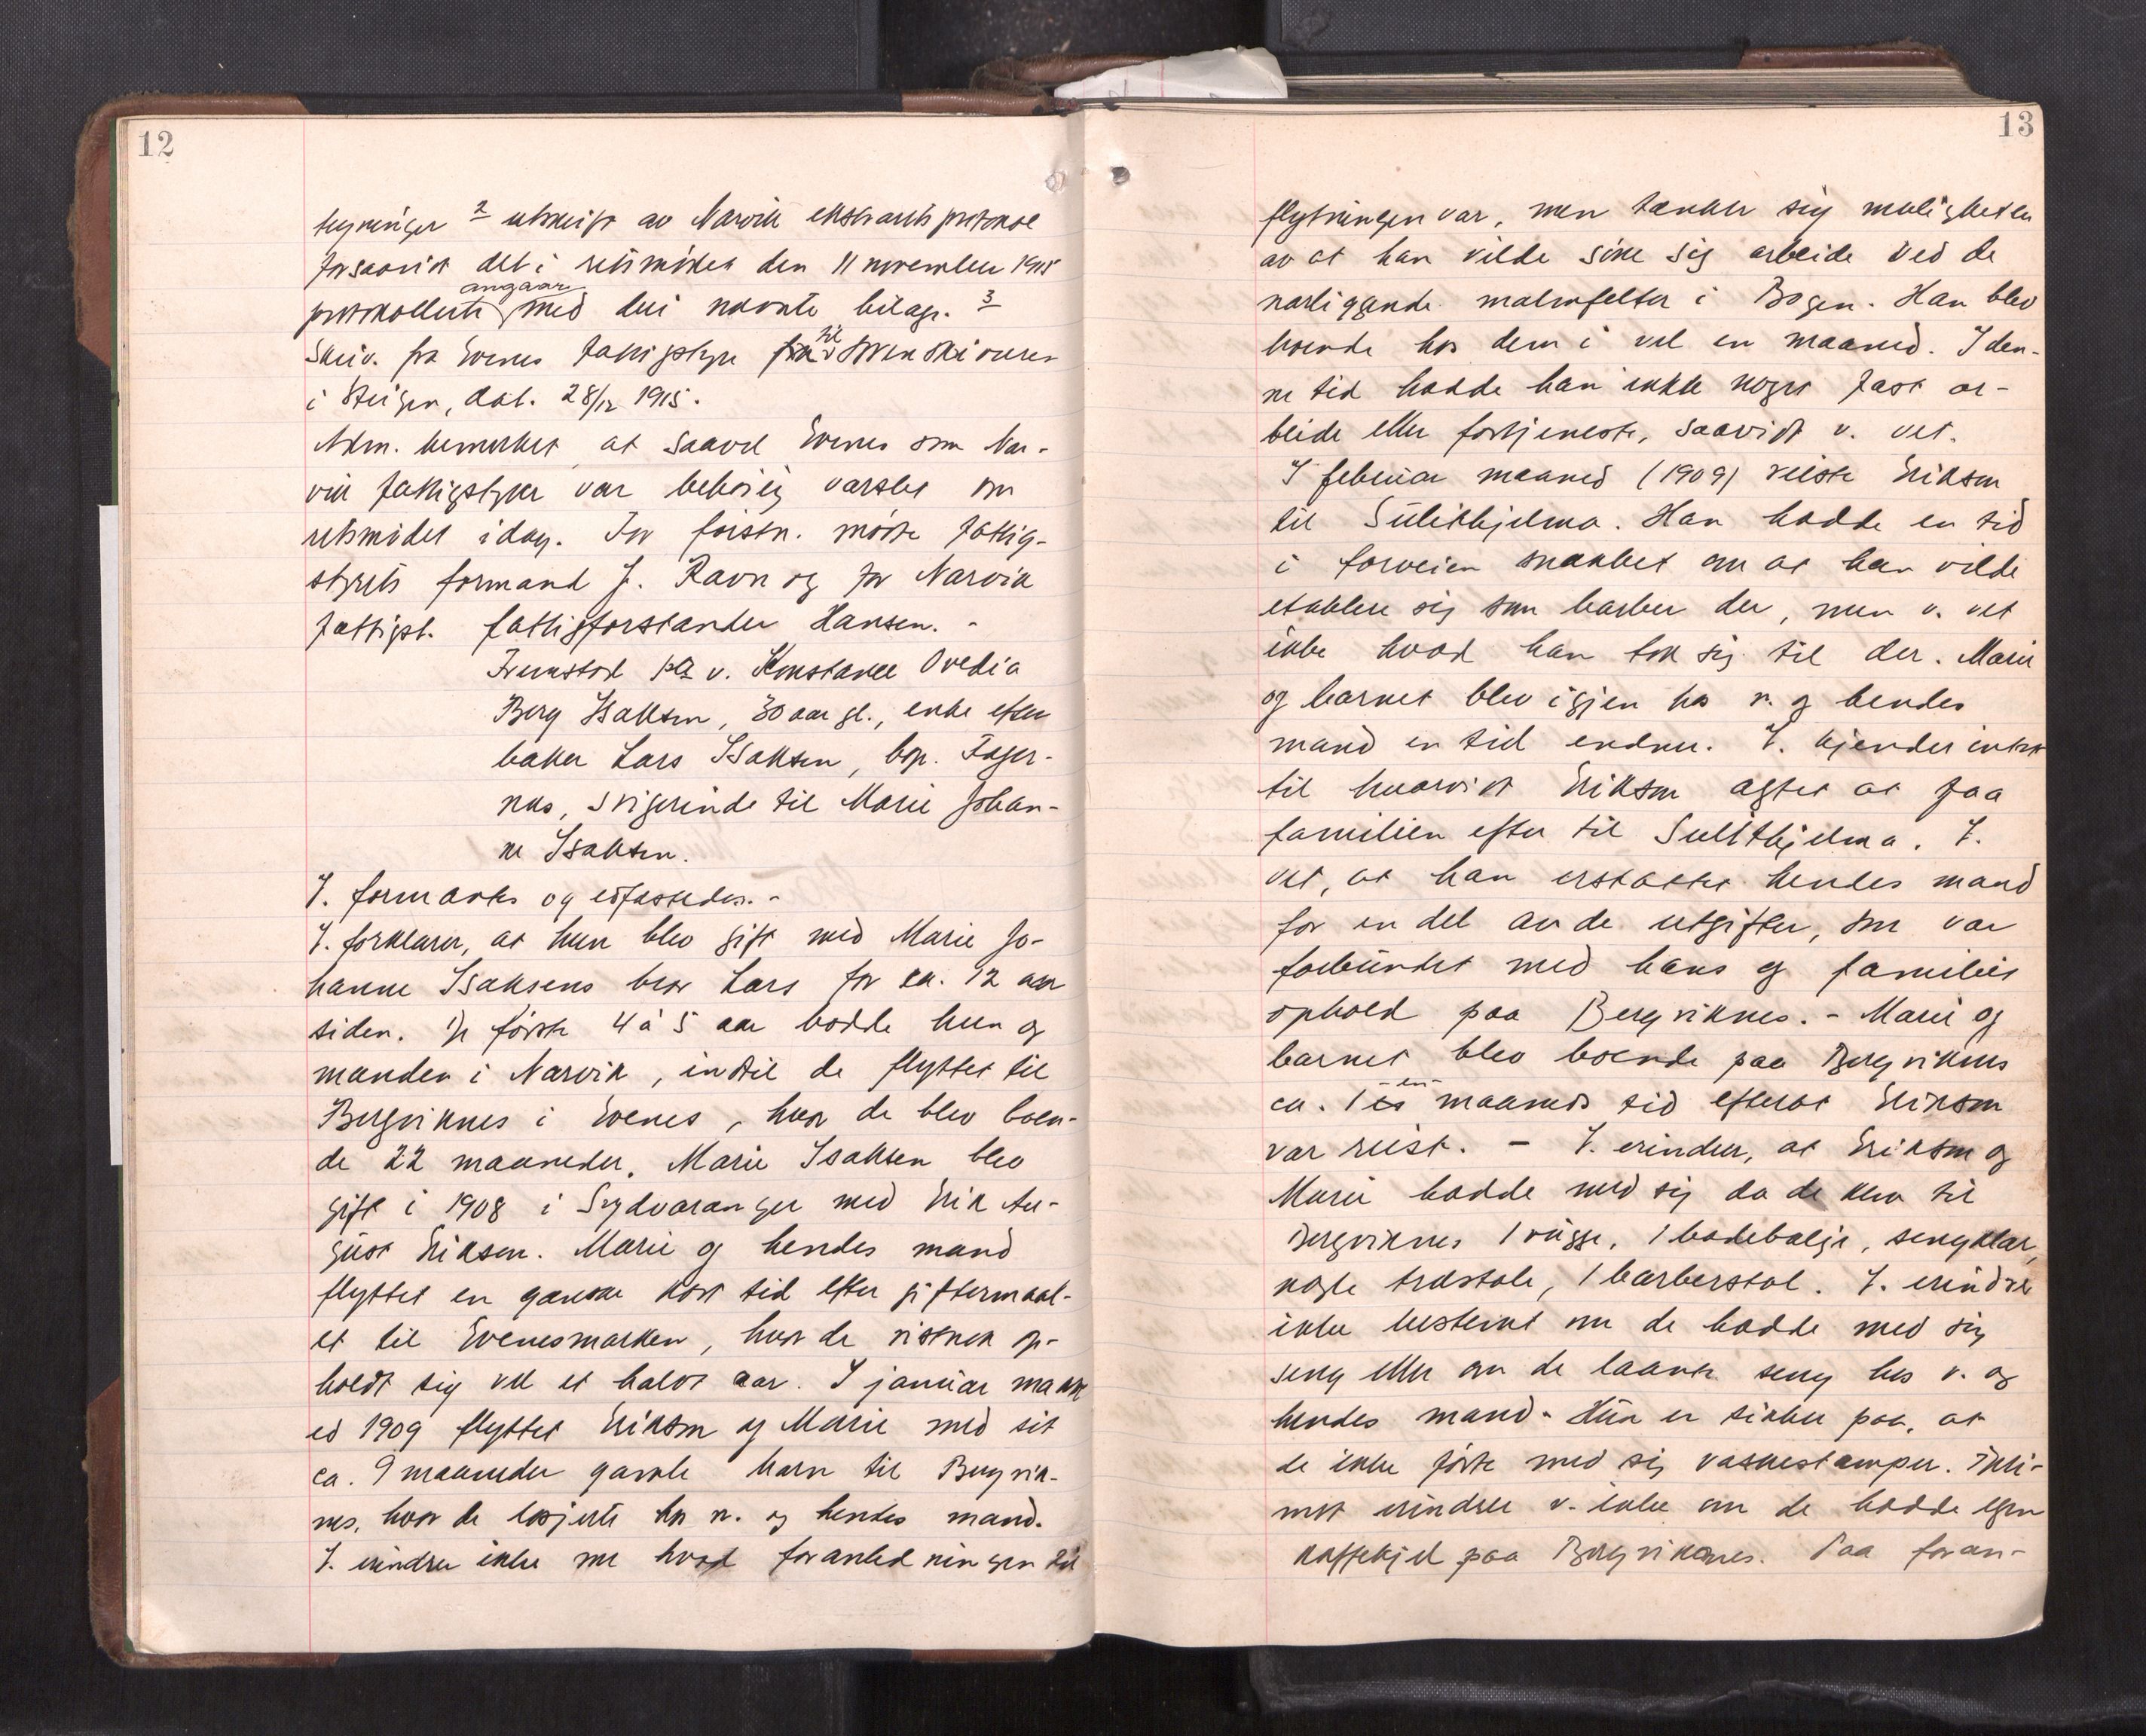 12
tegninger 2 utskrift av Narvik ekstraretsprotokol
forsaavidt det i retsmøtet den 11 november 1915
angaar
protokollerte med dei nævnte bilage. 3
Skriv. fra Evenes fattigstyre fra til sorenskriveren
i Steigen, dat. 28/12 1915.
Adm. bemerket, at saavel Evenes som Nar-
vik fattigstyre var behørig varslet om
retsmødet idag. For førstn. møtte fattig-
styrets formand J. Ravn og for Narvik
fattigst. fattigforstander Hansen. -
Fremstod v. Konstance Ovedia
Berg Isaksen, 30 aar gl., enke efter
baker Lars Isaksen, bop. Fager-
nes, svigerinde til Marie Johan-
ne Isaksen.
V. formantes og edfæstedes. -
V. forklarer, at hun blev gift med Marie Jo-
hanne Isaksens bror Lars for ca. 12 aar
siden. De første 4 à 5 aar bodde hun og
manden i Narvik, indtil de flyttet til
Bergviknes i Evenes, hvor de blev boen-
de 22 maaneder. Marie Isaksen blev
gift i 1908 i Sydvaranger med Erik Au-
gust Eriksen. Marie og hendes mand
flyttet en ganske kort tid efter giftermaal-
et til Evenesmarken, hvor de vistnok op-
holdt sig vel et halvt aar. I januar maan
ed 1909 flyttet Eriksen og Marie med sit
ca. 9 maaneder gamle barn til Bergvik-
nes, hvor de losjerte hos v. og hendes mand.
V. erindrer ikke me hvad foranledningen til
13
flytningen var, men tænker sig muligheten
av at han vilde søke sig arbeide ved de
nærliggende malmfelter i Bogen. Han blev
boende hos dem i vel en maaned. I den-
ne tid hadde han ikke noget fast ar-
beide eller fortjeneste, saavidt v. vet.
I februar maaned (1909) reiste Eriksen
til Sulitjhjelma. Han hadde en tid
i forveien snakket om at han vilde
etablere sig som barber der, men v. vet
ikke hvad han tok sig til der. Marie
og barnet blev igjen hos v. og hendes
mand en tid endnu. V. kjender intet
til hvorvidt Eriksen agtet at faa
familien efter til Sulithjelma. V.
vet, at han erstattet hendes mand
for en del av de utgifter, som var
forbundet med hans og families
ophold paa Bergviknes. - Marie og
barnet blev boende paa Bergviknes
ca. 1 -en- maaneds tid efterat Eriksen
var reist. - V. erindrer, at Eriksen og
Marie hadde med sig da de kom til
Bergviknes 1 vugge, 1 badebalje, sengklær,
nogle træstole, 1 barberstol. V. erindrer
ikke bestemt om de hadde med sig
seng eller om de laante seng hos v. og
hendes mand. Hun er sikker paa, at
de ikke førte med sig vaskestamper.
mot erindrer v. ikke om de hadde egen
kaffekjel paa Bergviknes. Paa foran-